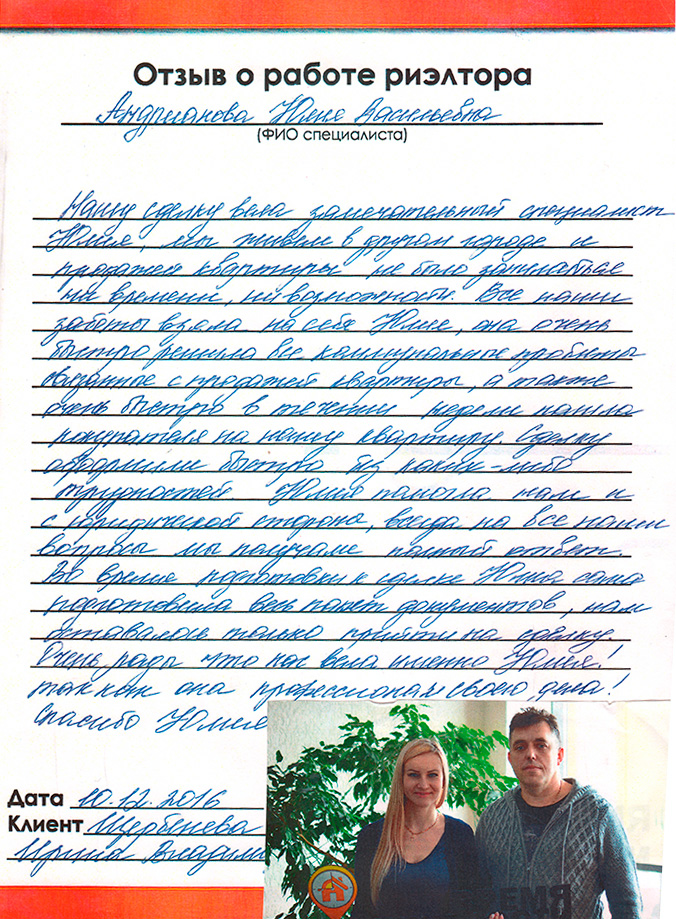 Отзыв о работе риэлтора
Андрианова Юлия Васильевна
(ФИО специалиста)
Нашу сделку вела замечательный специалист
Юлия, мы живем в другом городе и
продажей квартиры не было заниматься
ни времени, ни возможности. Все наши
заботы взяла на себя Юлия, она очень
быстро решила все коммунальные проблемы
связанные с продажей квартиры, а также
очень быстро в течении недели нашла
покупателя на нашу квартиру. Сделку
оформили быстро без каких-либо
трудностей Юлия помогла нам и
с юридической стороны, всегда на все наши
вопросы мы получали полный ответ.
Во время подготовки к сделке Юлия сама
подготовила весь пакет документов, нам
оставалось только прийти на сделку.
Очень рады что нас вела именно Юлия!
так как она профессионал своего дела!
Спасибо Юлия
Дата 10.12.2016
Клиент Щербенева
Ирина